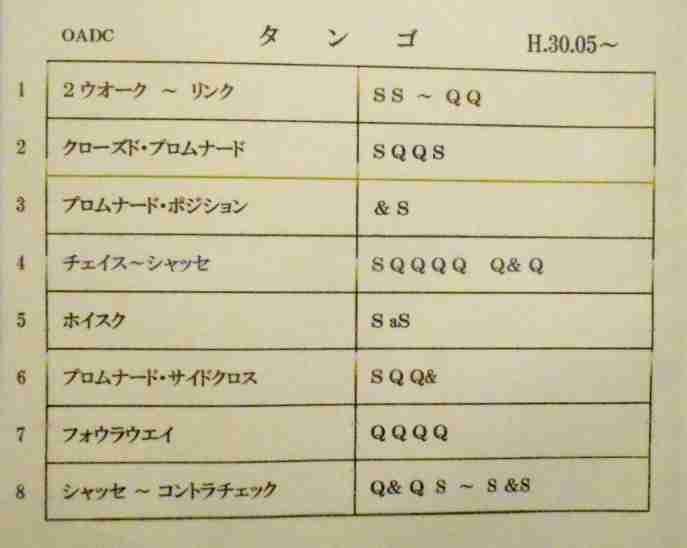 OADC タ ン ゴ H.30.05～
1 2ウオーク ～ リンク S S ～ Q Q
2 クローズド・プロムナード S Q Q S
3 プロムナード・ポジション & S
4 チェイス～シャッセ S Q Q Q Q Q& Q
5 ホイスク S aS
6 プロムナード・サイドクロス S Q Q&
7 フォウラウエイ Q Q Q Q
8 シャッセ ～ コントラチェック Q& Q S ～ S &S